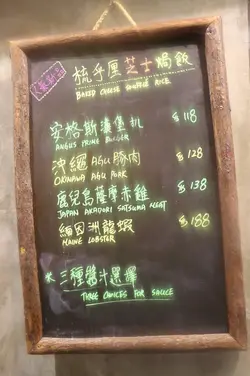 梳乎厘芝士焗飯
BAKED CHEESE SOUFFLE RICE
安格斯漢堡扒 $118
ANGUS PRIME BURGER
沖繩AGU豚肉 $128
OKINAWA AGU PORK
鹿兒島薩摩赤雞 $138
JAPAN AKADORI SATSUMA MEAT
緬因洲龍蝦 $188
MAINE LOBSTER
* 三種醬汁選擇
THREE CHOICES FOR SAUCE